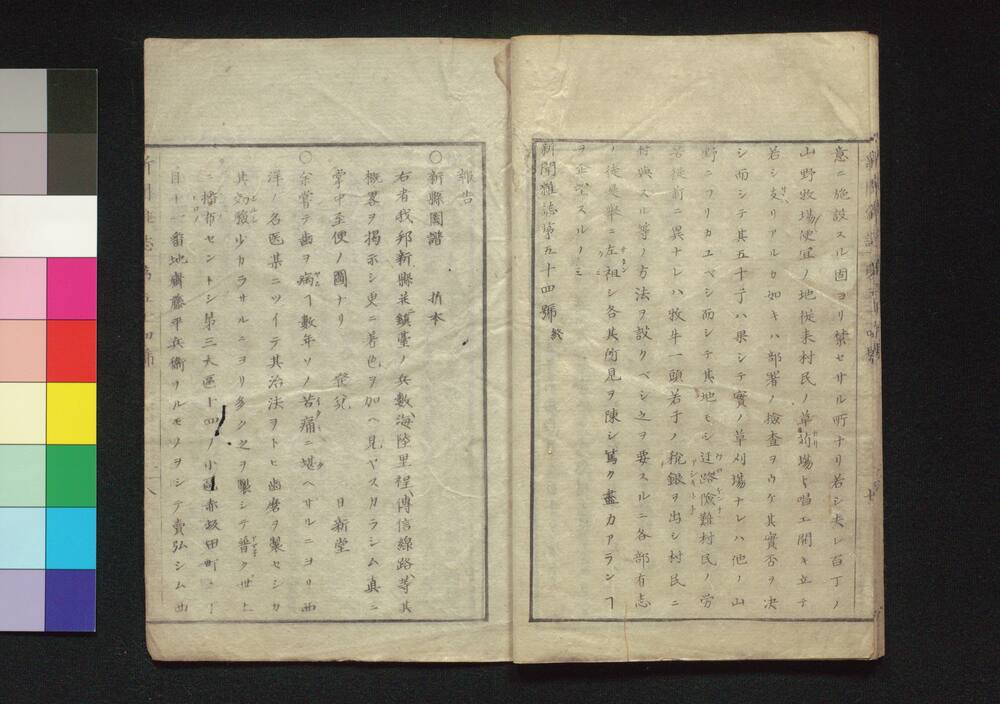 意ニ施設スル固ヨリ禁セサル所ナリ若シ夫レ百丁ノ
山野牧場便宜ノ地従来村民ノ草苅場ト唱エ開キ立テ
若シ支リアルカ如キハ部署ノ檢査ヲウケ其實否ヲ决
シ而シテ其五十丁ハ果シテ實ノ草刈場ナレハ他ノ山
野ニフリカユベシ而シテ其地モシ迂路險難村民ノ労
若従前ニ異ナレハ牧牛一頭若干ノ税鍬ヲ出シ村民ニ
村與スル等ノ方法ヲ設クベシ之ヲ要スルニ各部有志
ノ徒是挙ニ左袒シ各其所見ヲ陳シ篤ク盡力アランヿ
ヲ企望スルノミ
新聞雜誌第五十四號 終
報告
○新縣圖譜 折本
右者我邦新縣並鎮臺ノ兵數、海陸里程、傳信線路、等其
概畧ヲ揭示シ更ニ著色ヲ加ヘ見ヤスカラシム真ニ
掌中至便ノ圖ナリ 發兌 日新堂
○余嘗テ歯ヲ病ヿ數年ソノ苦痛ニ堪ヘサルニヨリ西
洋ノ名医某ニツイテ其治法ヲトヒ歯磨ヲ製セシカ
其効驗少カラサルニヨリ多ク之ヲ製シテ普ク世上
ニ播布セントシ第三大區十四ノ小區赤坂田町
目十一番地齋藤平兵衛ナルモノヲシテ賣弘シム西